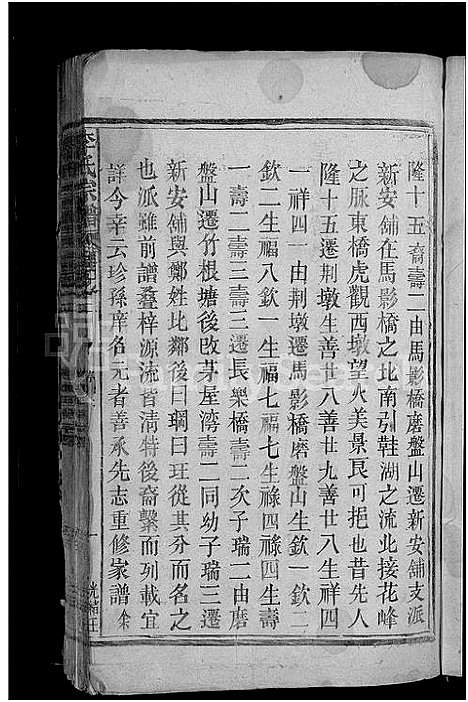 隆十五裔壽二由馬影橋磨盤山遷新安舖支派
新安舖在馬影橋之北南引鞋湖之流北接花峰
之脉東橋虎觀西墩望火美景良可挹也昔先人
隆十五遷荆墩生善廿八善廿九善廿八生祥四
一祥四一由荆墩遷馬影橋磨盤山生欽一欽二
欽二生福八欽一生福七福七生祿四祿四生壽
一壽二壽三壽三遷長樂橋壽二次子瑞二由磨
盤山遷竹根塘後改茅屋湾壽二同幼子瑞三遷
新安舖與鄭姓比鄰後曰瑚曰玨從其分而名之
也派雖前譜叠梓源流皆清特後裔繫而列載宜
詳今幸云珍孫庠名元者善承先志重修家譜余
李氏宗譜